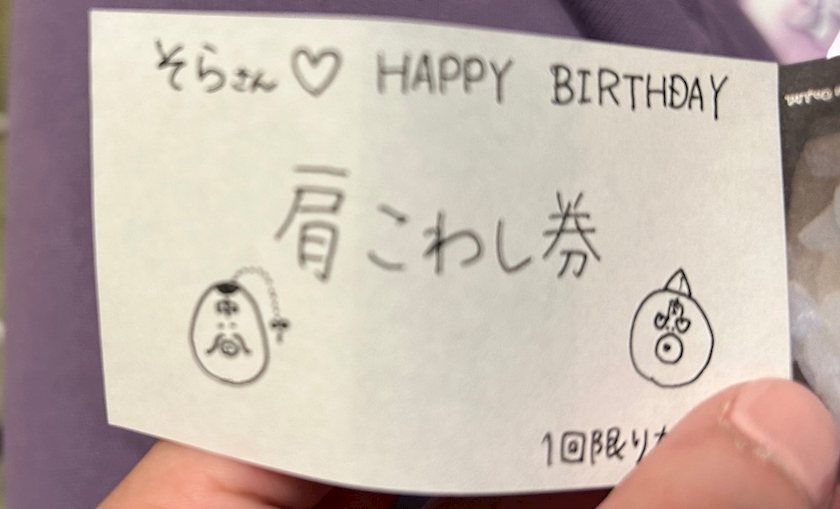 そらさん♡ HAPPY BIRTHDAY
肩こわし券
1回限り